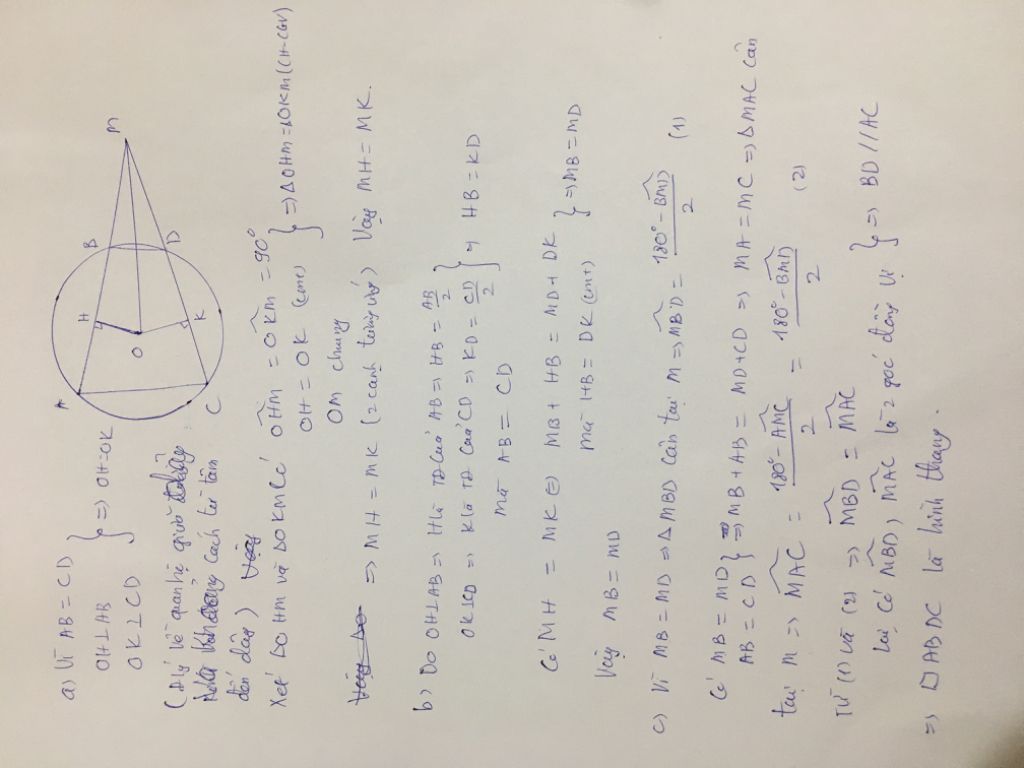 A
H
B
M
O
C
K
D
a) Vì AB = CD
OH⊥AB
OK⊥CD
} => OH=OK
(Đlý về quan hệ giữa
cách từ tâm
đến dây)
Xét ΔOHM và ΔOKM có
OĤM = OK̂M = 90°
OH = OK (cmt)
OM chung
} => ΔOHM=ΔOKM(CH-CGV)
=> MH = MK (2 cạnh tương ứng) Vậy MH = MK.
b) Do OH⊥AB => H là TĐ của AB => HB = AB/2
OK⊥CD => K là TĐ của CD => KD = CD/2
mà AB = CD
} => HB = KD
Có MH = MK (=) MB + HB = MD + DK
mà HB = DK (cmt)
} => MB = MD
Vậy MB = MD
c) Vì MB = MD => Δ MBD cân tại M => MB̂D = (180° - BM̂D)/2 (1)
Có MB = MD
AB = CD
} => MB + AB = MD + CD => MA = MC => Δ MAC cân
tại M => MÂC = (180° - AM̂C)/2 = (180° - BM̂D)/2 (2)
Từ (1) và (2) => MB̂D = MÂC
Lại có MB̂D, MÂC là 2 góc đồng vị
} => BD // AC
=> □ABDC là hình thang.